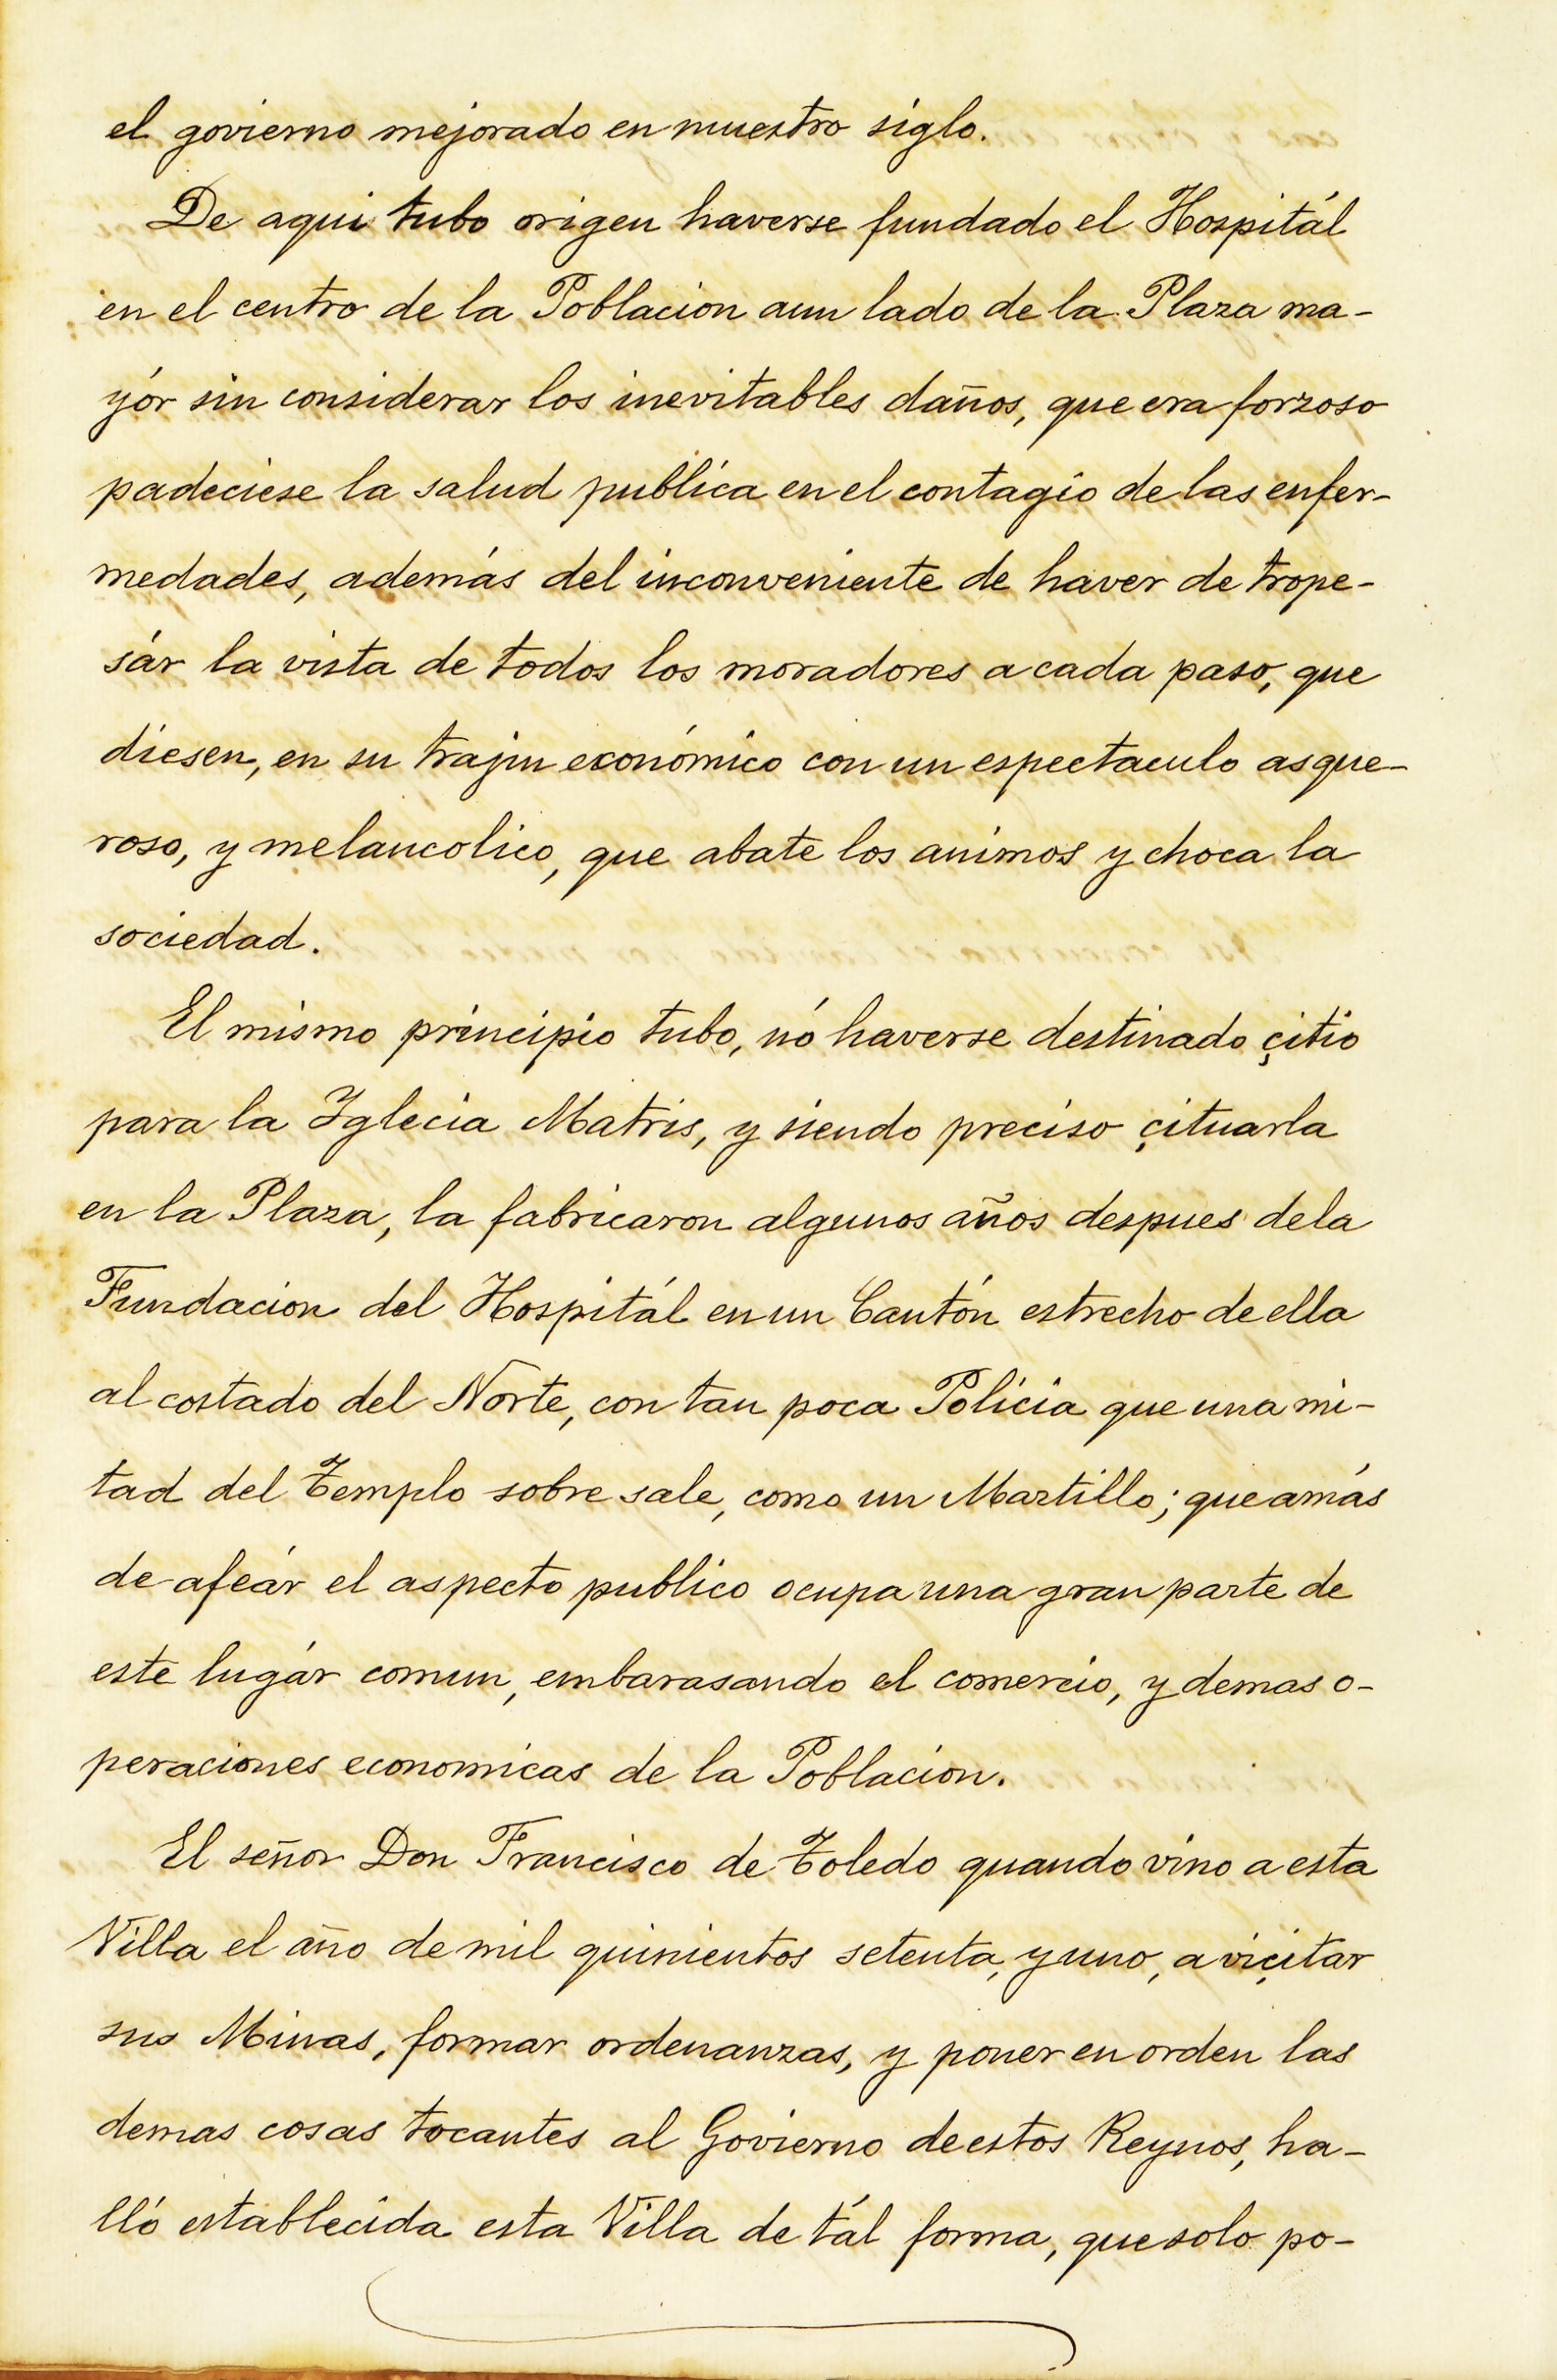 el govierno mejorado en nuestro siglo.
De aqui tubo origen haverse fundado el Hospitál
en el centro de la Poblacion aun lado de la Plaza ma-
yór sin considerar los inevitables daños, que era forzoso
padeciese la salud publica en el contagio de las enfer-
medades, además del inconveniente de haver de trope-
sár la vista de todos los moradores a cada paso, que
diesen, en su trajin económico con un espectaculo asque-
roso, y melancolico, que abate los animos y choca la
sociedad.
El mismo principio tubo, nó haverse destinado çitio
para la Iglecia Matris, y siendo preciso çituarla
en la Plaza, la fabricaron algunos años despues dela
Fundacion del Hospitál en un Cantón estrecho de ella
al costado del Norte, con tan poca Policia que una mi-
tad del Templo sobre sale, como un Martillo; que amás
de afeár el aspecto publico ocupa una gran parte de
este lugár comun, embarasando el comercio, y demas o-
peraciones economicas de la Poblacion.
El señor Don Francisco de Toledo quando vino a esta
Villa el año de mil quinientos setenta, y uno, a viçitar
sus Minas, formar ordenanzas, y poner en orden las
demas cosas tocantes al Govierno de estos Reynos, ha-
lló establecida esta Villa de tál forma, que solo po-